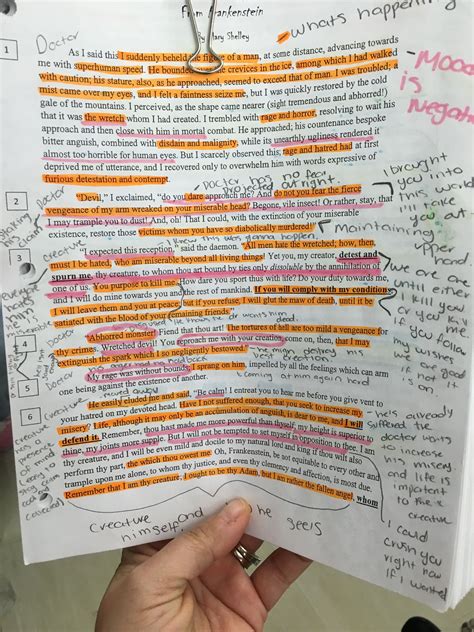 From Frankenstein
By Mary Shelley
whats happening
Doctor
MOOD
is
Negative
1
As I said this I suddenly beheld the figure of a man, at some distance, advancing towards
me with superhuman speed. He bounded the crevices in the ice, among which I had walked
with caution; his stature, also, as he approached, seemed to exceed that of man. I was troubled; a
mist came over my eyes, and I felt a faintness seize me, but I was quickly restored by the cold
gale of the mountains. I perceived, as the shape came nearer (sight tremendous and abhorred!)
that it was the wretch whom I had created. I trembled with rage and horror, resolving to wait his
approach and then close with him in mortal combat. He approached; his countenance bespoke
bitter anguish, combined with disdain and malignity, while its unearthly ugliness rendered it
almost too horrible for human eyes. But I scarcely observed this; rage and hatred had at first
deprived me of utterance, and I recovered only to overwhelm him with words expressive of
furious detestation and contempt.
Doctor
2
"Devil," I exclaimed, "do you dare approach me? And do not you fear the fierce
vengeance of my arm wreaked on your miserable head? Begone, vile insect! Or rather, stay, that
I may trample you to dust! And, oh! That I could, with the extinction of your miserable
existence, restore those victims whom you have so diabolically murdered!"
I brought
you into
this world
Maintaining
upper
hand
Creature
I knew this was gonna happen
3
I expected this reception," said the daemon. "All men hate the wretched; how, then,
must I be hated, who am miserable beyond all living things! Yet you, my creator, detest and
spurn me, thy creature, to whom thou art bound by ties only dissoluble by the annihilation of
one of us. You purpose to kill me. How dare you sport thus with life? Do your duty towards me,
and I will do mine towards you and the rest of mankind. If you will comply with my condition
I will leave them and you at peace; but if you refuse, I will glut the maw of death, until it be
satiated with the blood of your remaining friends."
we are
until
either
I kill
you
or you
Doctor
dead.
4
"Abhorred monster! Fiend that thou art! The tortures of hell are too mild a vengeance for
thy crimes. Wretched devil! You reproach me with your creation, come on, then, that I may
extinguish the spark which I so negligently bestowed."
5
My rage was without bounds; I sprang on him, impelled by all the feelings which can arm
one being against the existence of another.
coming at him again hard
moved away
Creature
6
He easily eluded me and said, "Be calm! I entreat you to hear me before you give vent to
your hatred on my devoted head. Have I not suffered enough, that you seek to increase my
misery? Life, although it may only be an accumulation of anguish, is dear to me, and I will
defend it. Remember, thou hast made me more powerful than thyself; my height is superior to
thine, my joints more supple. But I will not be tempted to set myself in opposition to thee. I am
thy creature, and I will be even mild and docile to my natural lord and king if thou wilt also
perform thy part, the which thou owest me. Oh, Frankenstein, be not equitable to every other and
trample upon me alone, to whom thy justice, and even thy clemency and affection, is most due.
Remember that I am thy creature; I ought to be thy Adam, but I am rather the fallen angel, whom
he's already
suffered the
doctor wants
to increase
his misery
and life is
important
to the
creature
I could
crush you
right now
if I wanted
creature he sees
himself and